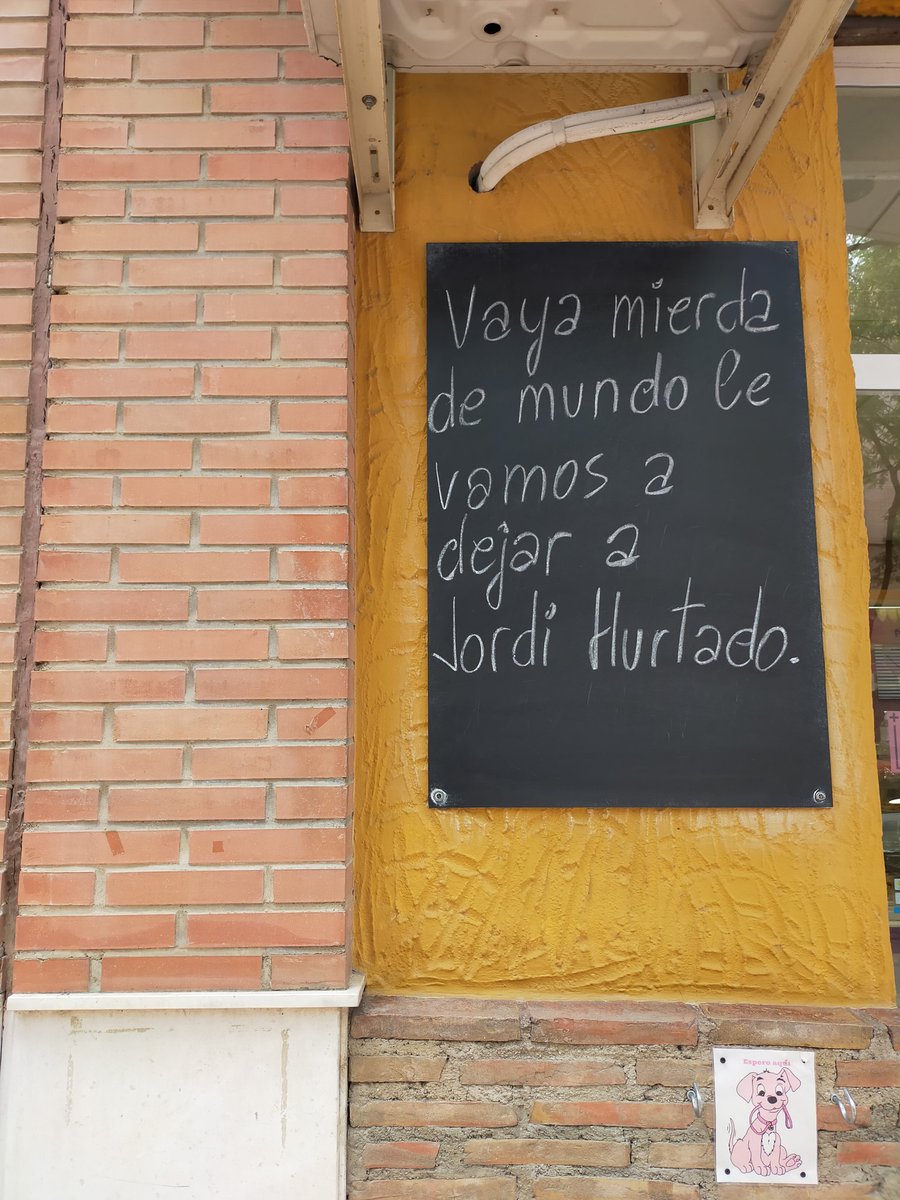 Vaya mierda
de mundo le
vamos a
dejar a
Jordi Hurtado.
Espero aquí